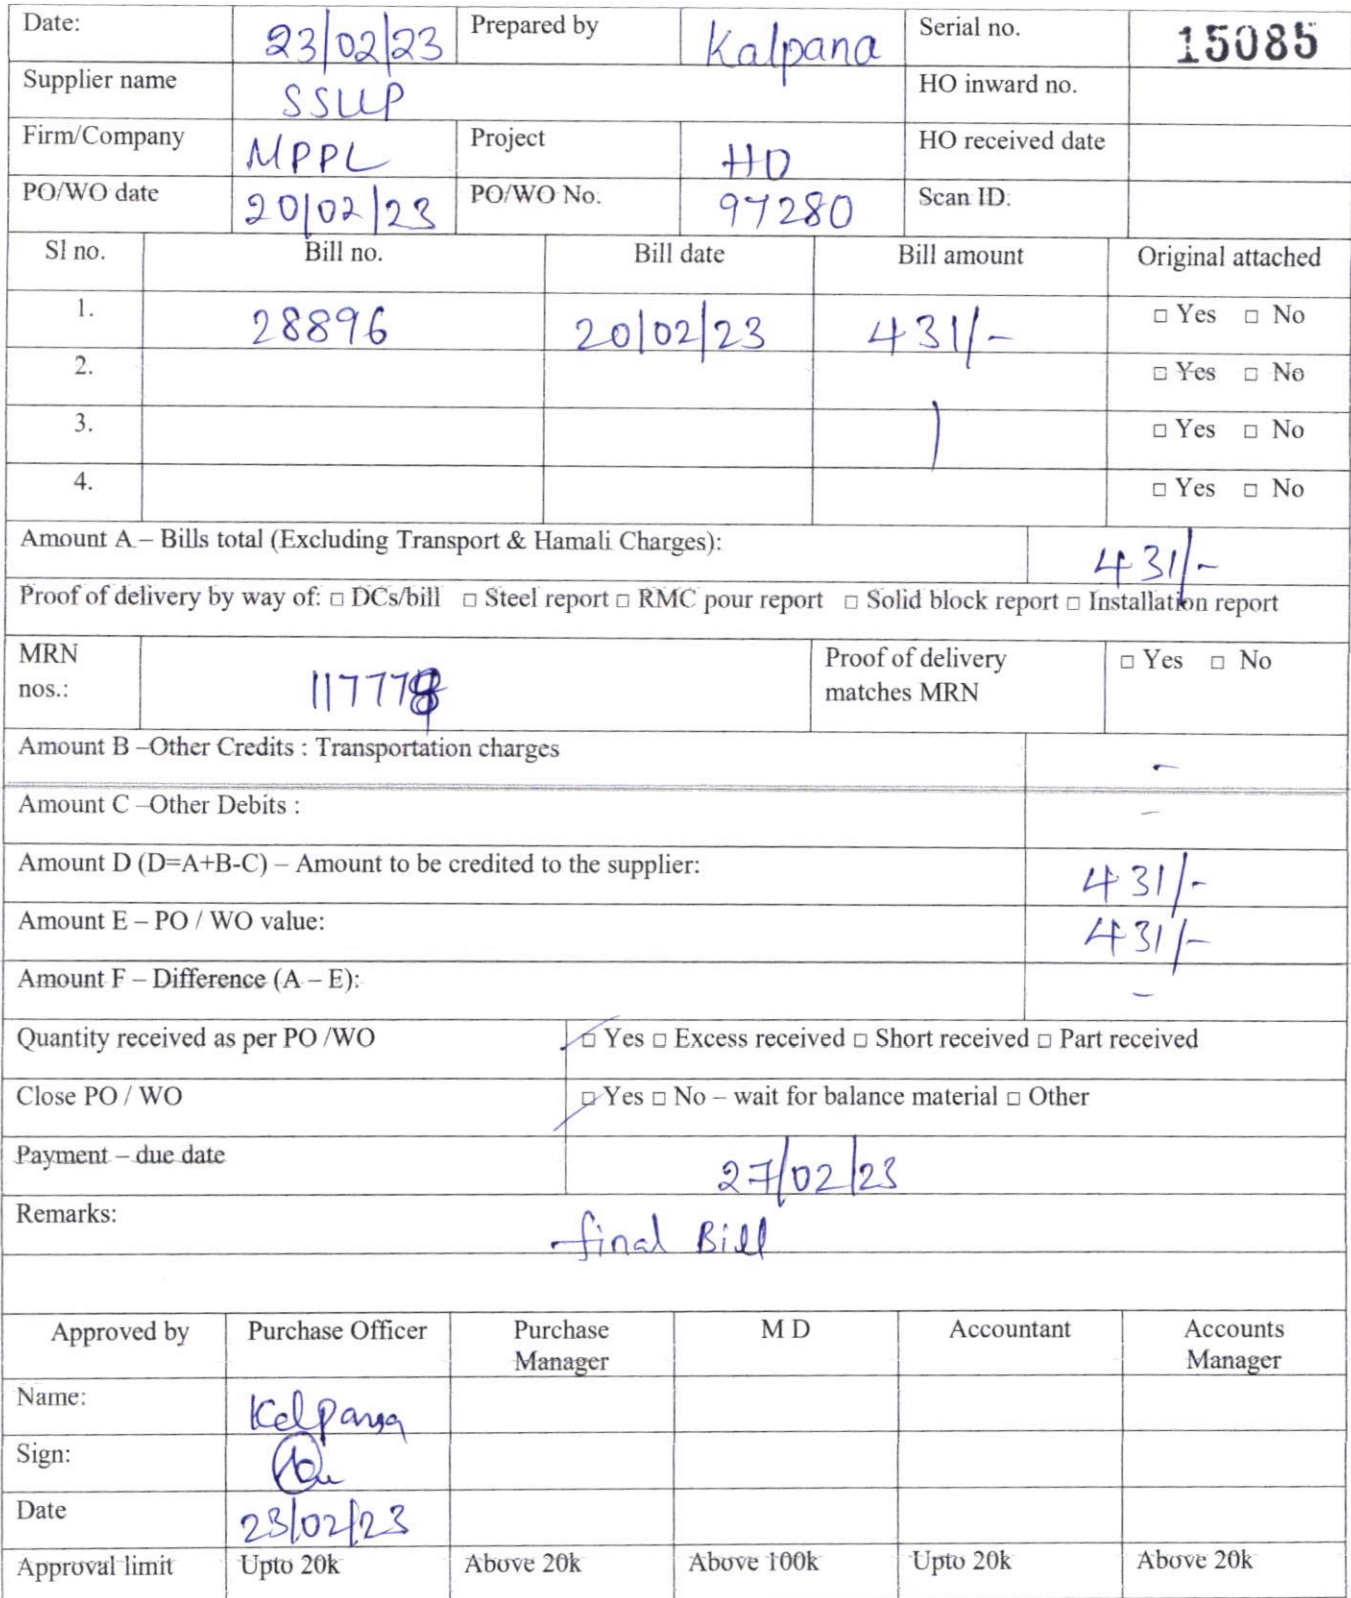 Date: 23/02/23 Prepared by Kalpana Serial no. 15085
Supplier name SSLLP HO inward no.
Firm/Company MPPL Project HO HO received date
PO/WO date 20/02/23 PO/WO No. 97280 Scan ID.
Sl no. Bill no. Bill date Bill amount Original attached
1. 28896 20/02/23 431/- □ Yes □ No
2. □ Yes □ No
3. □ Yes □ No
4. □ Yes □ No
Amount A – Bills total (Excluding Transport & Hamali Charges): 431/-
Proof of delivery by way of: □ DCs/bill □ Steel report □ RMC pour report □ Solid block report □ Installation report
MRN nos.: Proof of delivery □ Yes □ No
matches MRN
Amount B –Other Credits : Transportation charges -
Amount C –Other Debits : -
Amount D (D=A+B-C) – Amount to be credited to the supplier: 431/-
Amount E – PO / WO value: 431/-
Amount F – Difference (A – E): -
Quantity received as per PO /WO □ Yes □ Excess received □ Short received □ Part received
Close PO / WO □ Yes □ No – wait for balance material □ Other
Payment – due date 27/02/23
Remarks: final Bill
Approved by Purchase Officer Purchase Manager M D Accountant Accounts Manager
Name: Kalpana
Sign:
Date 23/02/23
Approval limit Upto 20k Above 20k Above 100k Upto 20k Above 20k